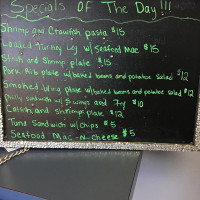 Specials Of The Day!!!
Shrimp and Crawfish pasta $15
Loaded Turkey Leg w/ Seafood Mac $15
Steak and Shrimp plate $15
Pork Rib plate w/ baked beans and potato salad $12
Smoked wing plate w/ baked beans and potato salad $12
Philly sandwich w/ 5 wings and Fry $10
Catfish and Shrimp plate $12
Tuna Sandwich w/ Chips $5
Seafood Mac-N-Cheese $5